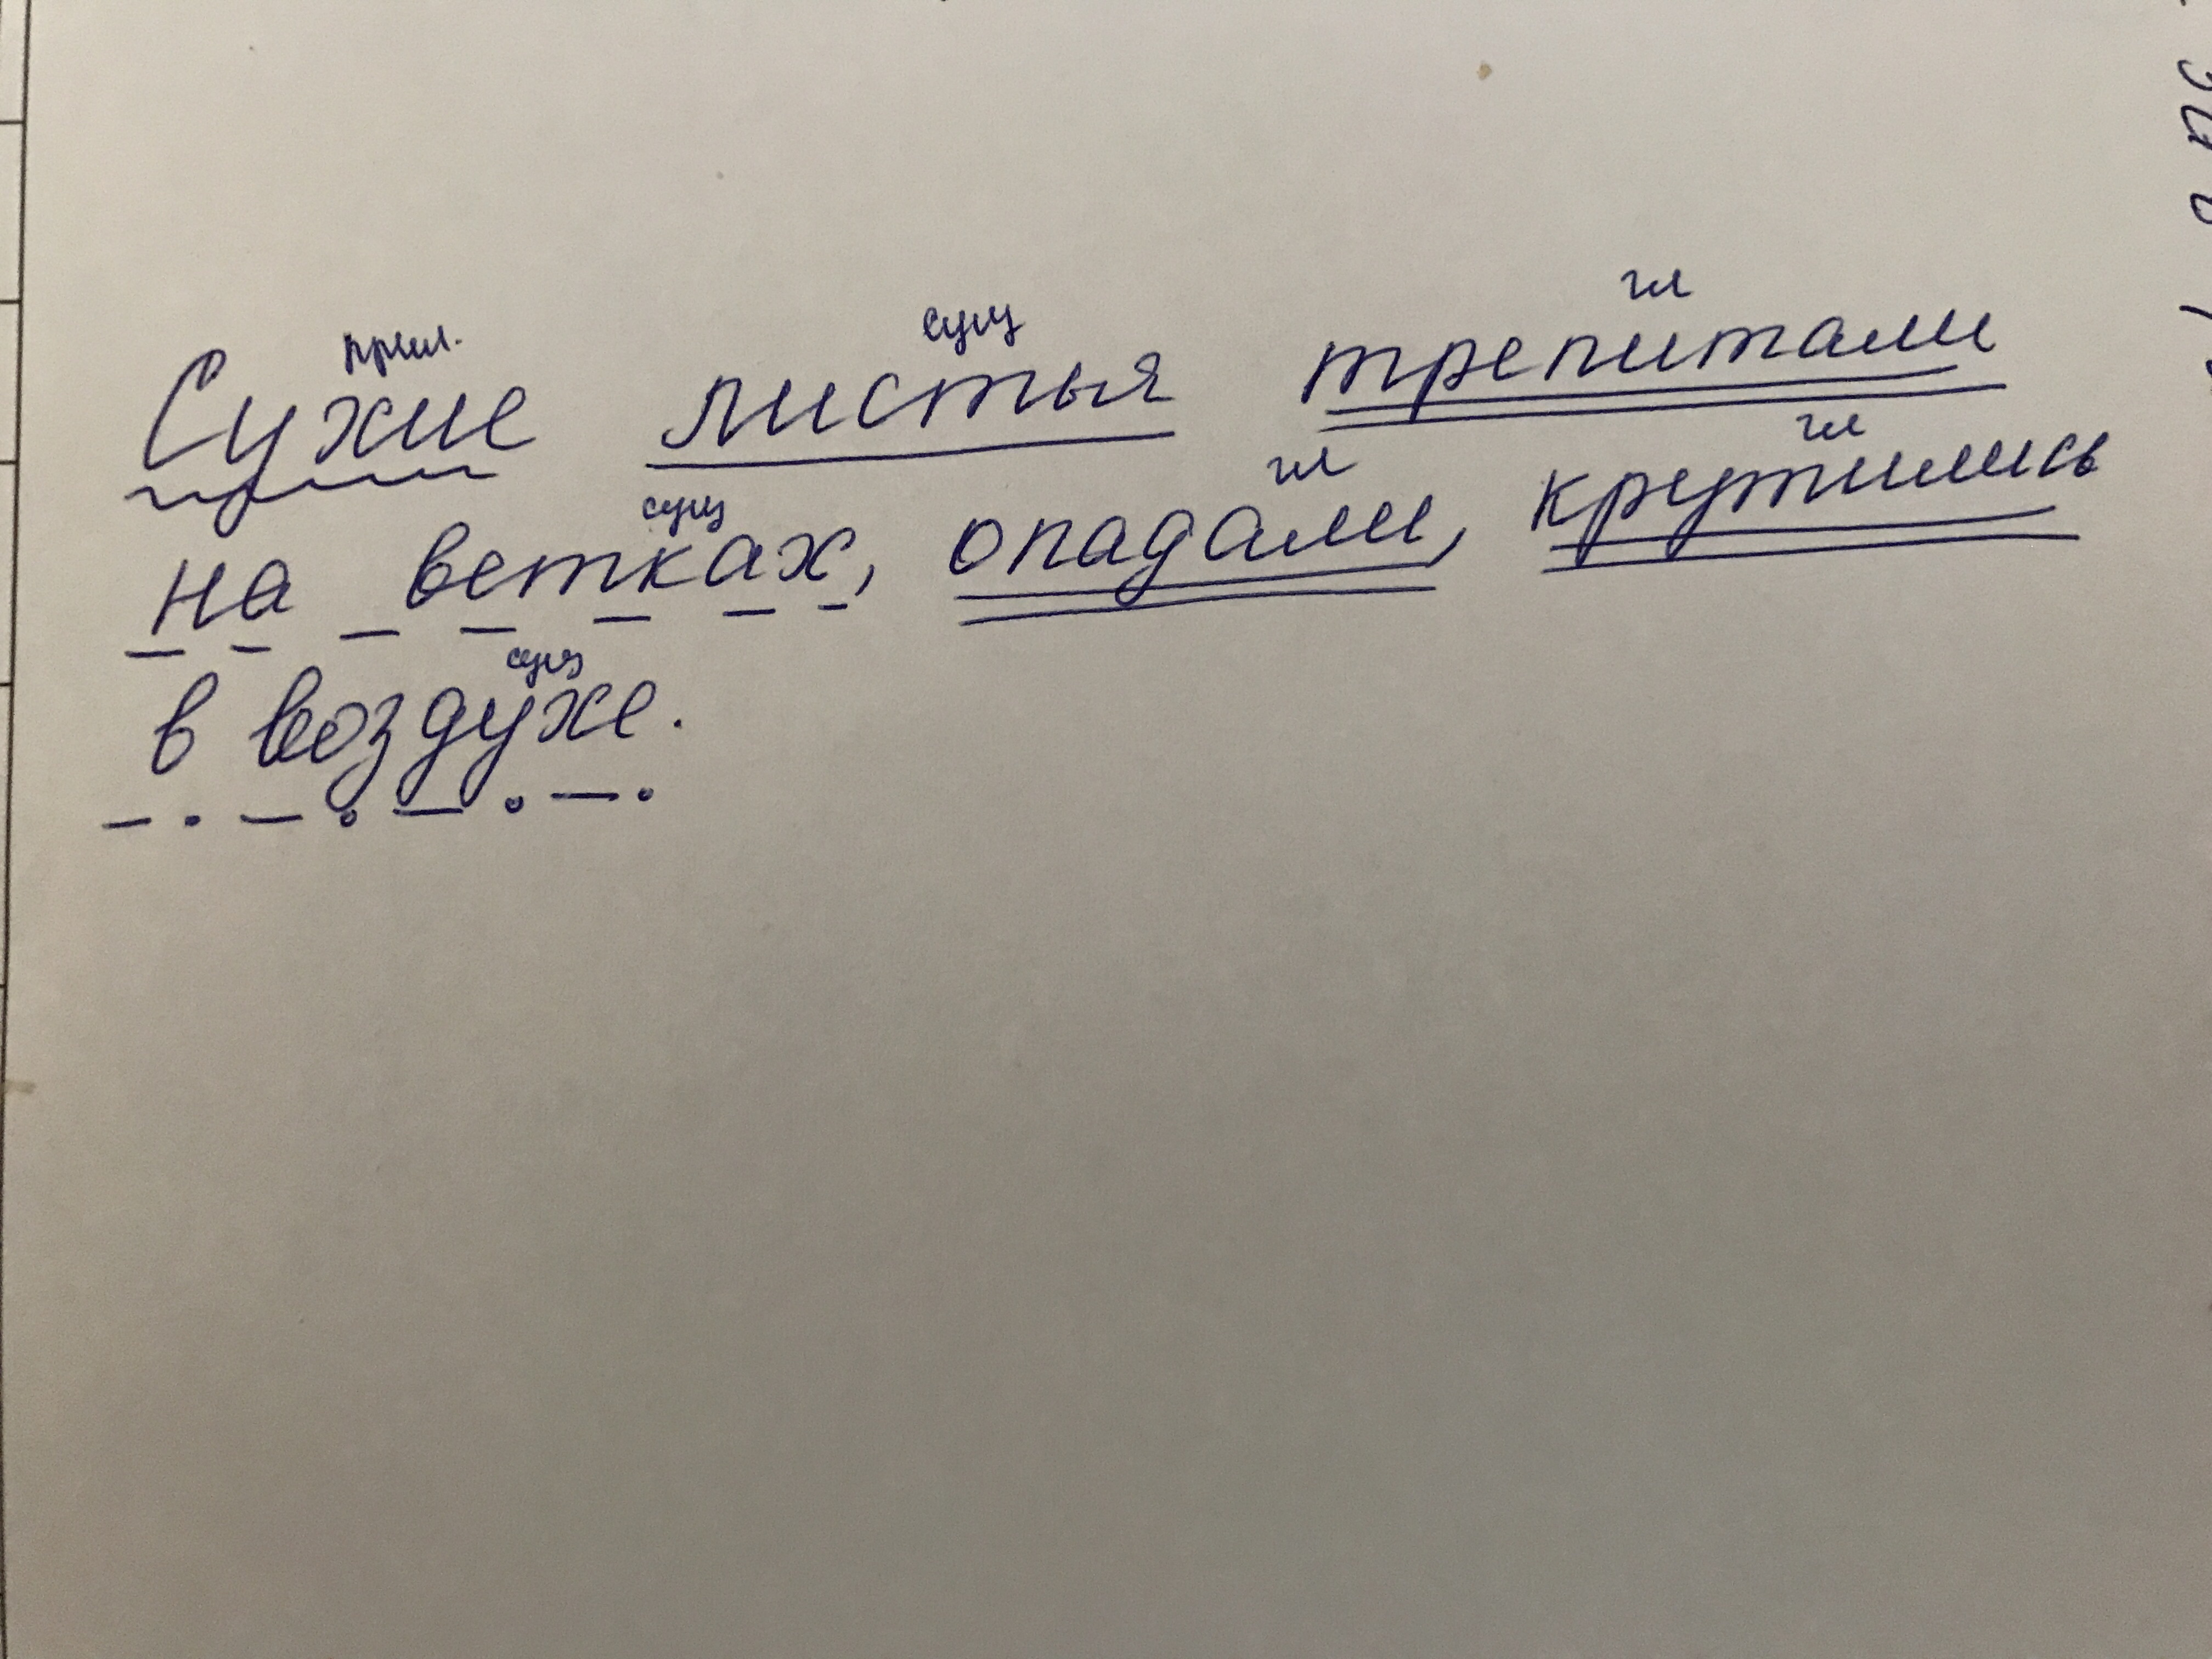 прил. сущ гл
Сухие листья трепитали
сущ гл гл
на ветках, опадали, крутились
сущ
в воздухе.